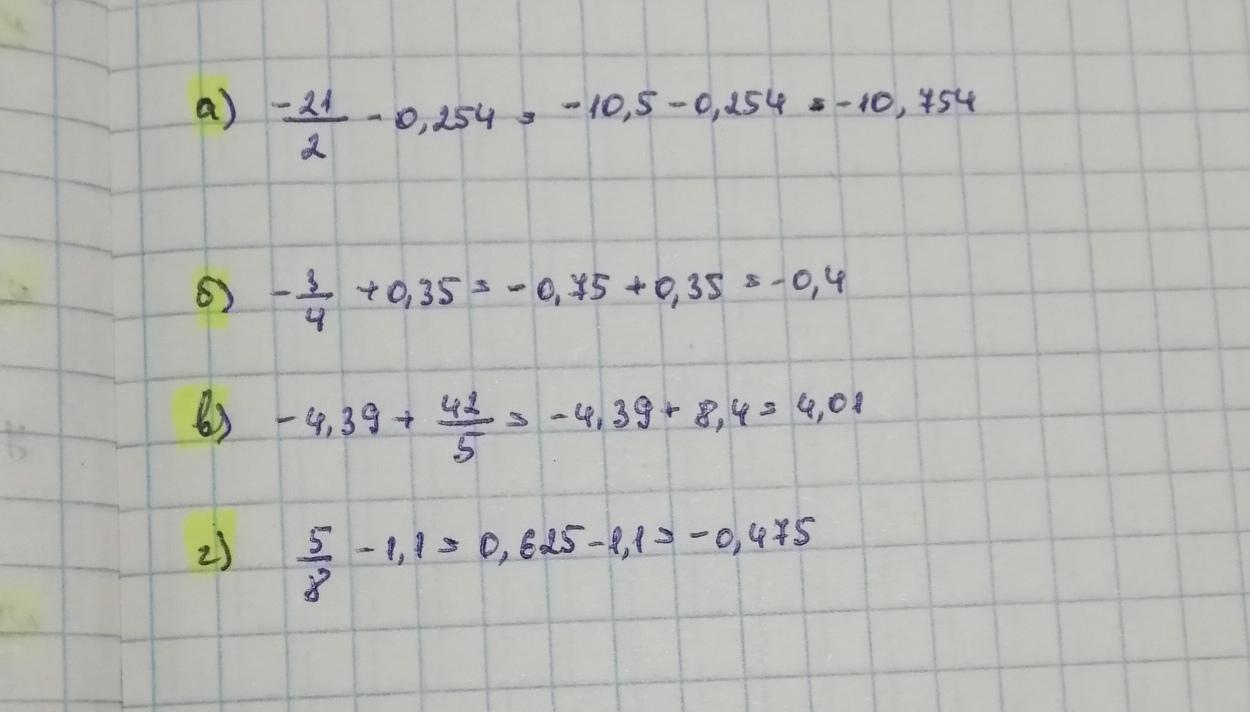 а) -21/2 - 0,254 = -10,5 - 0,254 = -10,754
б) -3/4 + 0,35 = -0,75 + 0,35 = -0,4
в) -4,39 + 42/5 = -4,39 + 8,4 = 4,01
г) 5/8 - 1,1 = 0,625 - 1,1 = -0,475